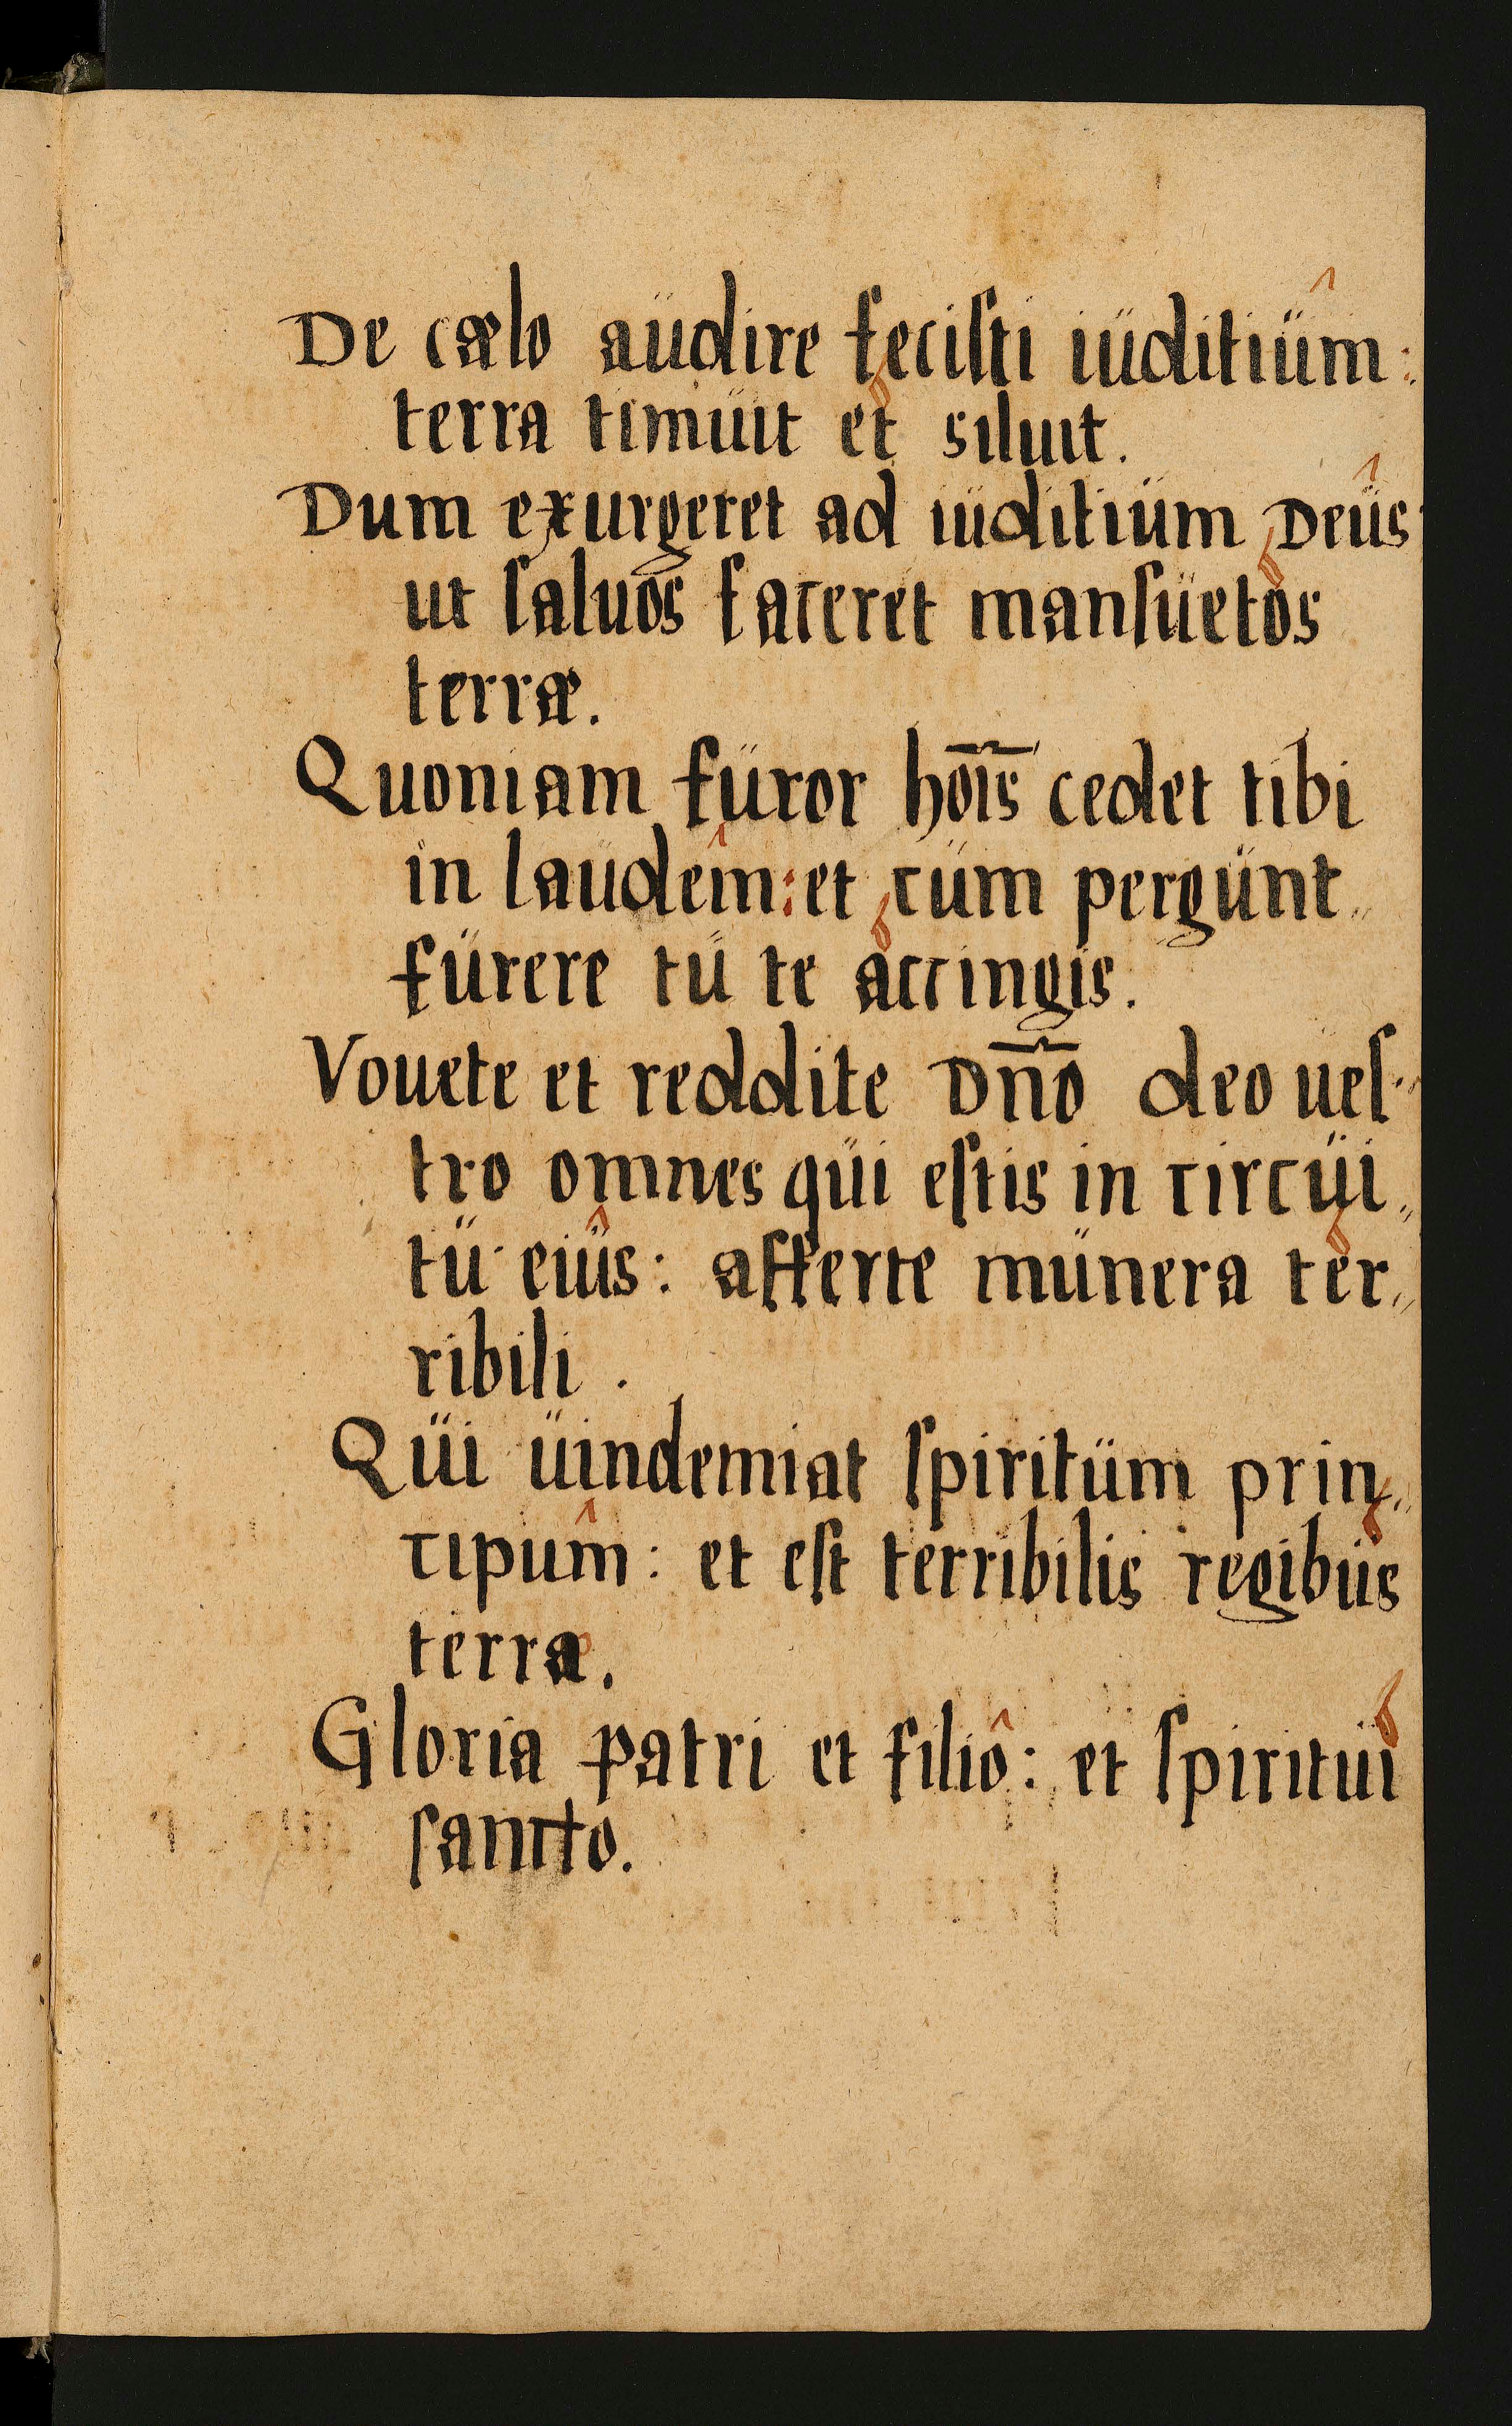 De cælo audire feciſti iuditium:
terra timuit et siluit.
Dum exurgeret ad iuditium Deus:
ut ſaluos faceret manſuetos
terræ.
Quoniam furor ho͞is cedet tibi
in laudem: et cum pergunt„
furere tu te accingis.
Vouete et reddite Dn͞o deo ueſ„
tro omnes qui eſtis in circui„
tu eius: afferte munera ter„
ribili.
Qui uindemiat ſpiritum prin„
cipum: et eſt terribilis regibus
terræ.
Gloria patri et filio: et ſpiritui
ſancto.